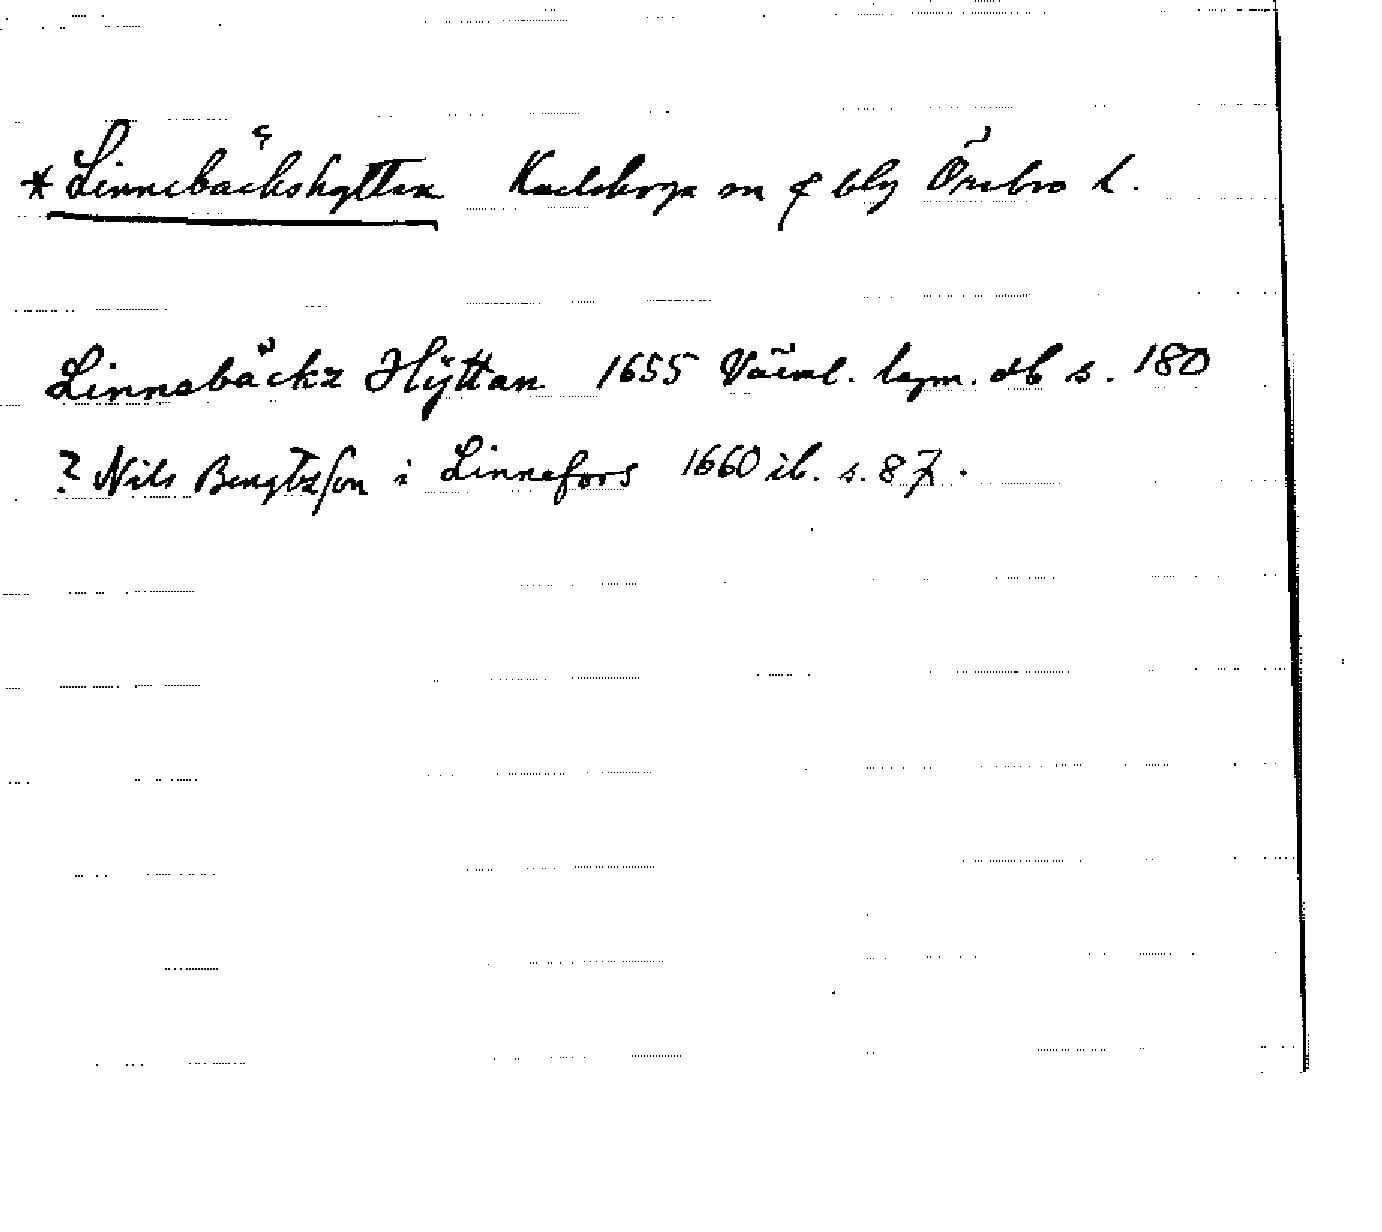 * Linnebäckshyttan Karlskoga sn o blg Örebro l.
Linnebäckz Hÿttan 1655 Värml. lagm. db s. 180
? Nils Bengtzson i Linnefors 1660 ib. s. 87.